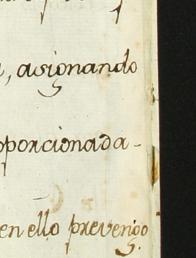 , asignando
oporcionada-
en ello prevenido